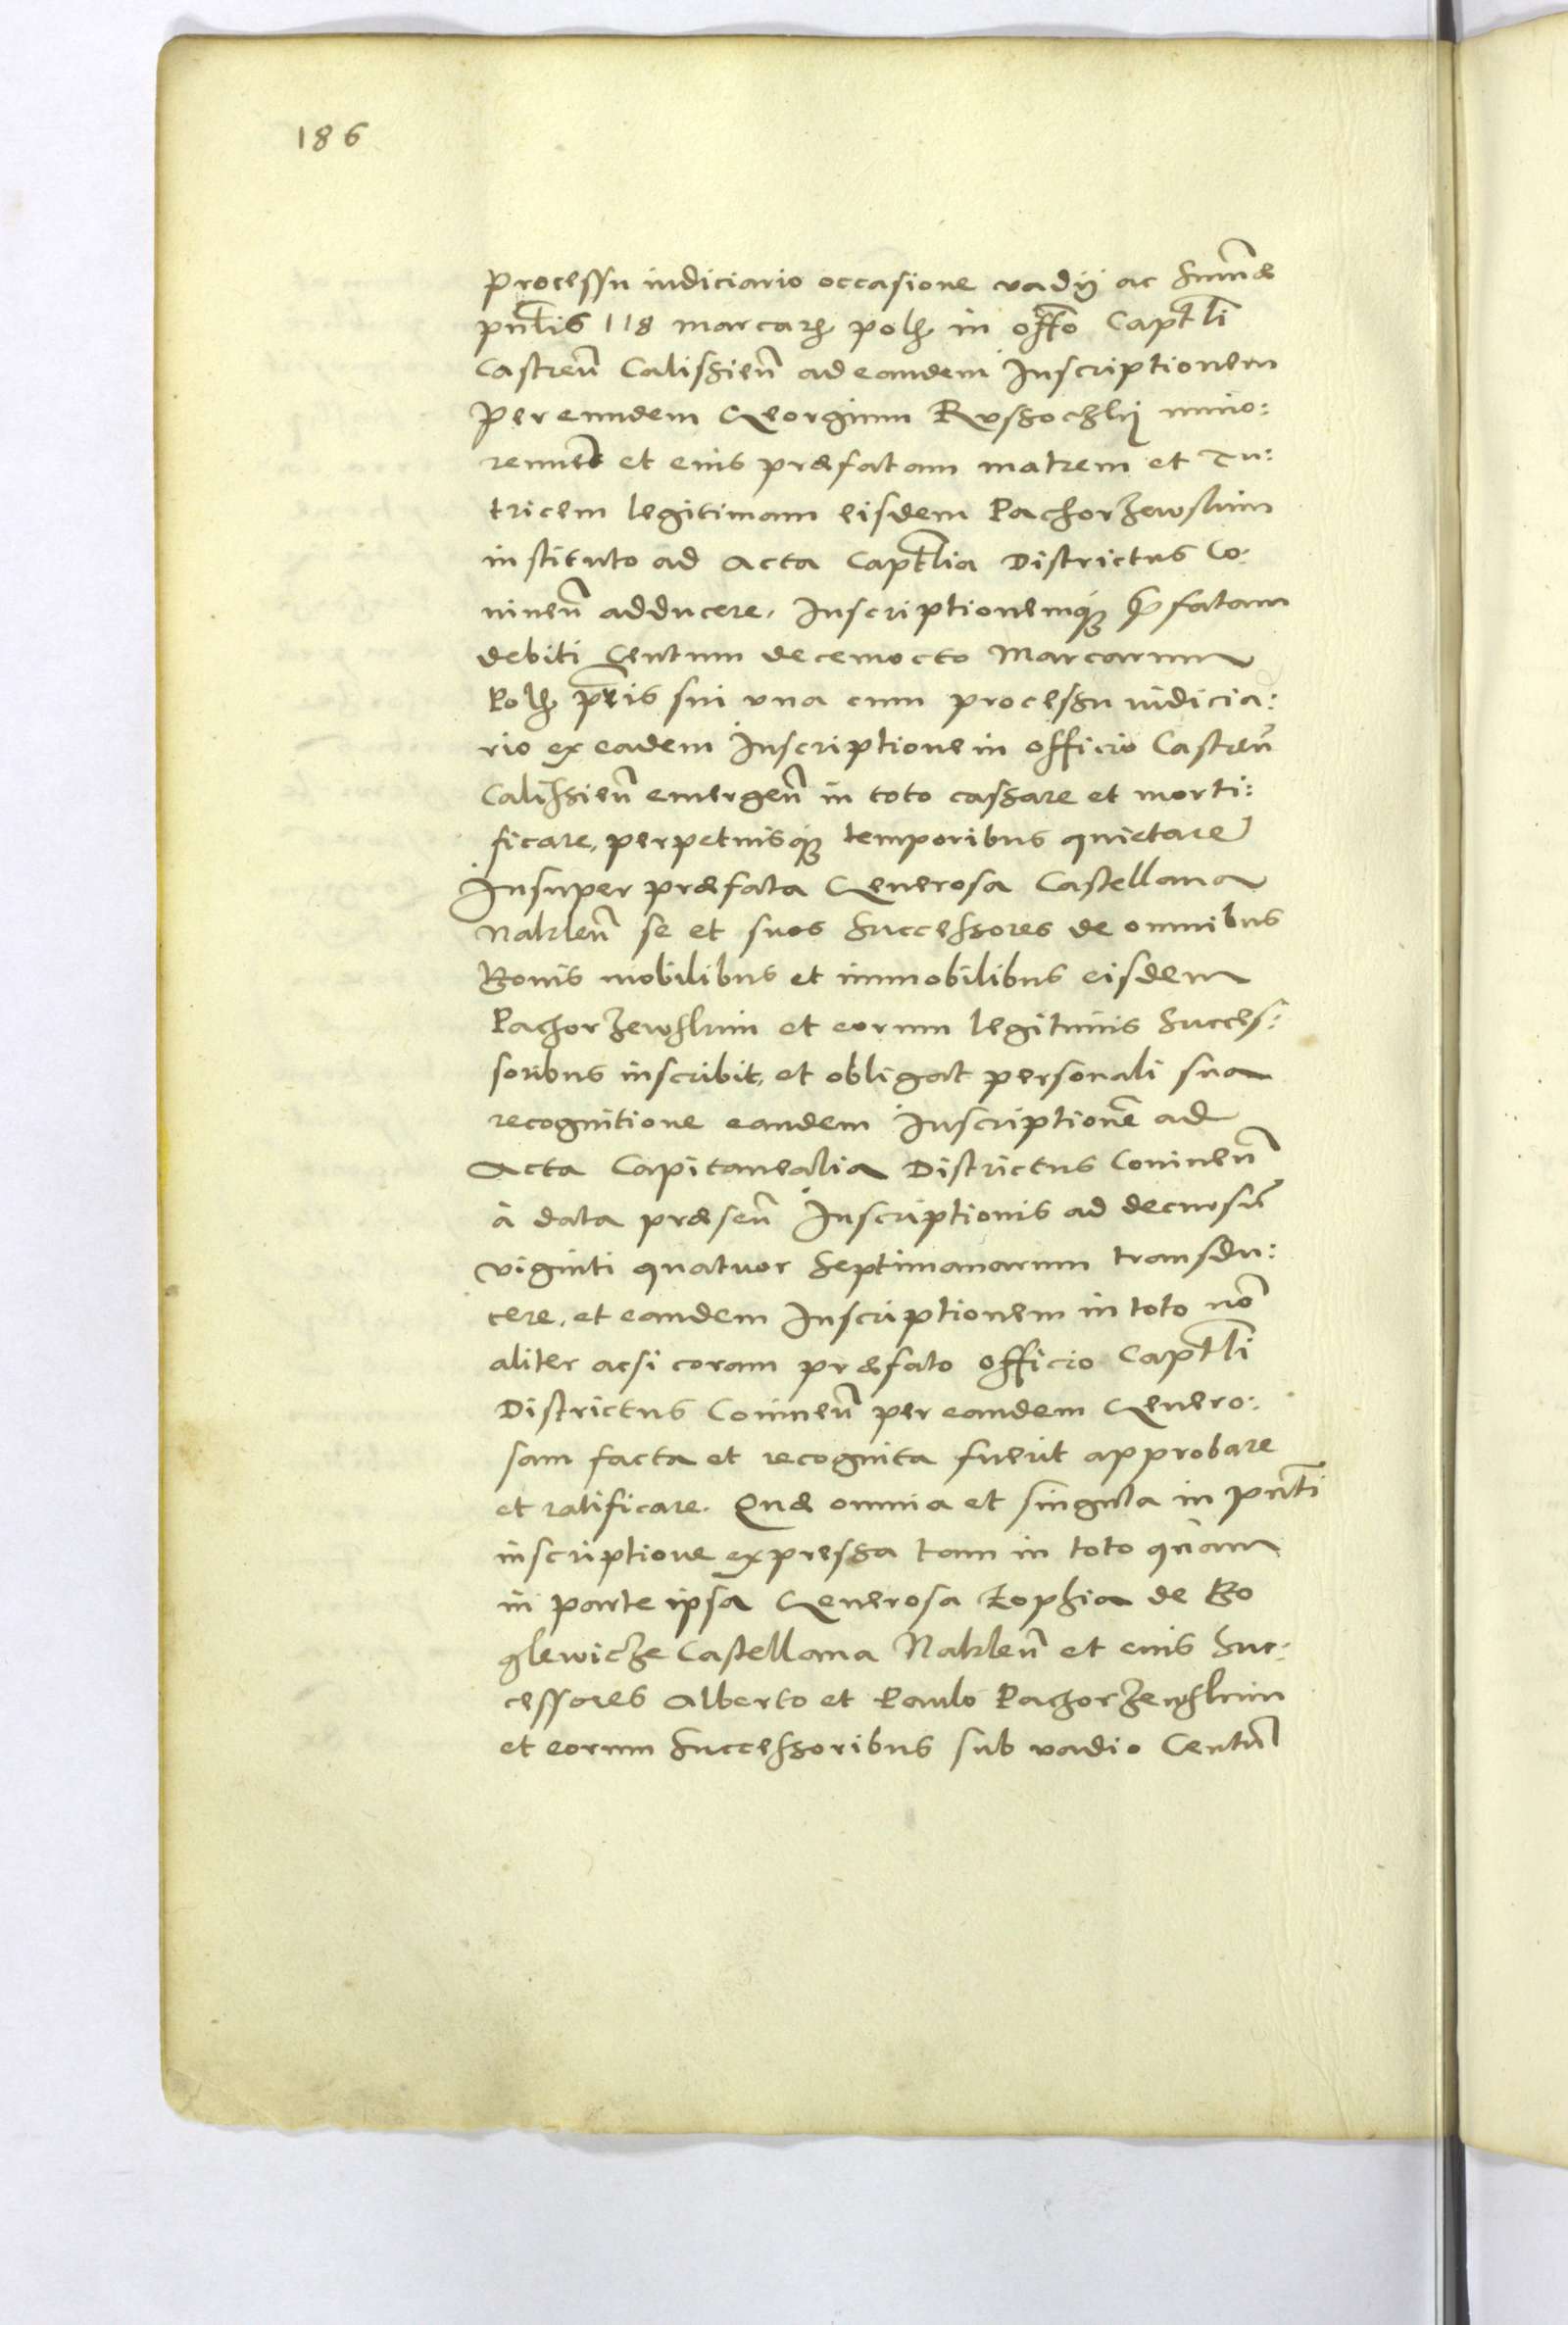 186
processu iudiciario occasione vadij ac Summæ
pnctlis 118 marcarꝝ polꝝ in offo Captlli
Castreñ Calissieñ ad eandem Inscriptionem
per eundem Georgium Russochlij mino:
rennem et eius præfatam matrem et Tu:
tricem legitimam eisdem Pachorzewskim
instituto ad Acta Captlia Districtus Co:
nineñ adducere, Inscriptionemq; præfatam
debiti Centum decemocto Marcarum
Polꝝ pris sui una cum processu iudicia:
rio ex eadem Inscriptione in officio Castreñ
Calissieñ emergeñ in toto cassare et morti:
ficare, perpetuisq; temporibus quietare
Insuper præfata Generosa Castellana
Nakleñ se et suos Successores de omnibus
Bonis mobilibus et immobilibus eisdem
Pachorzewskim et eorum legitimis Succes:
soribus inscribit, et obligat personali sua
recognitione eandem Inscriptionē ad
Acta Capitanealia Districtus Connineñ
à data præseñ Inscriptionis ad decursū
viginti quatuor Septimanarum transdu:
cere, et eandem Inscriptionem in toto nō
aliter acsi coram præfato officio Captlli
Districtus Connineñ per eandem Genero:
sam facta et recognita fuerit approbare
et ratificare. Quæ omnia et singula in pnti
inscriptione expressa tam in toto quàm
in parte ipsa Generosa Zophia de Bo
glewicze Castellana Nakleñ et eius Suc:
cessores Alberto et Paulo Pachorzewskim
et eorum Successoribus sub vadio Centū